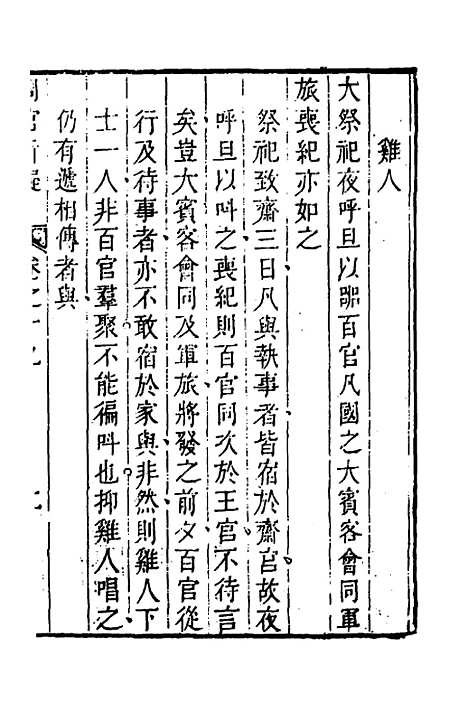 雞人
大祭祀夜呼旦以嘂百官凡國之大賓客會同軍
旅喪紀亦如之
祭祀致齋三日凡與執事者皆宿於齋宮故夜
呼旦以呌之喪紀則百官同次於王宮不待言
矣豈大賓客會同及軍旅將發之前夕百官從
行及待事者亦不敢宿於家與非然則雞人下
士一人非百官羣聚不能徧呌也抑雞人唱之
仍有遞相傳者與
卷之十九